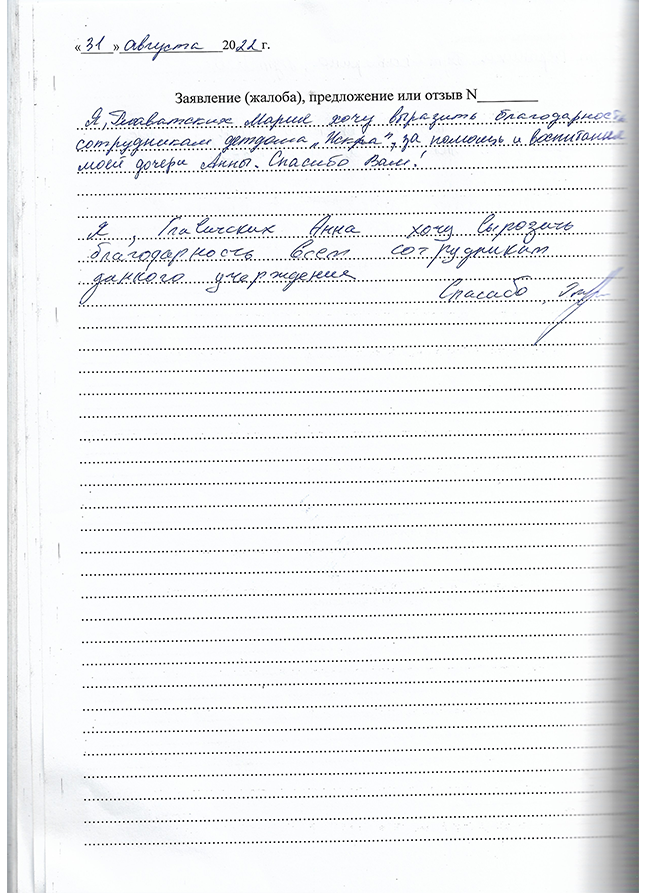 «31» августа 2022г.
Заявление (жалоба), предложение или отзыв N
Я, Марие хочу выразить благодарность
сотрудникам детдома „Искра", за помощь и воспитание
моей дочери Анны. Спасибо Вам!
Я, Анна хочу вырозить
благодарность всем сотрудникам
данного учарждения
Спасибо